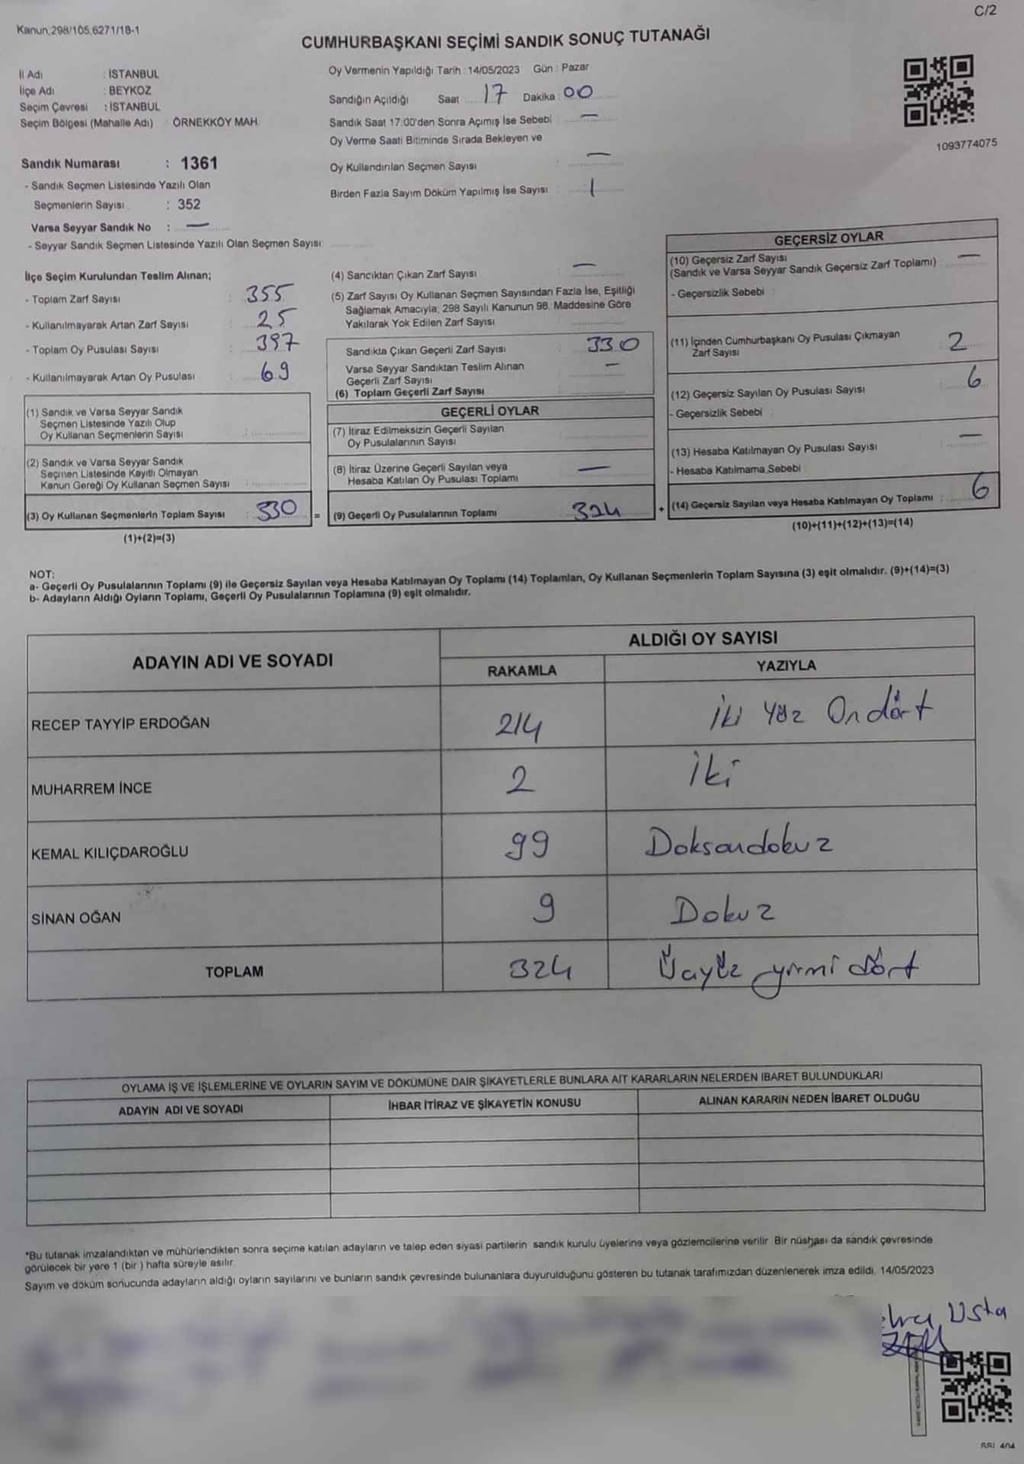 Kanun:298/105,6271/18-1
C/2
CUMHURBAŞKANI SEÇİMİ SANDIK SONUÇ TUTANAĞI
İl Adı : İSTANBUL
İlçe Adı : BEYKOZ
Seçim Çevresi : İSTANBUL
Seçim Bölgesi (Mahalle Adı) ÖRNEKKÖY MAH.
Sandık Numarası : 1361
- Sandık Seçmen Listesinde Yazılı Olan
Seçmenlerin Sayısı : 352
Varsa Seyyar Sandık No : —
- Seyyar Sandık Seçmen Listesinde Yazılı Olan Seçmen Sayısı
Oy Vermenin Yapıldığı Tarih : 14/05/2023 Gün : Pazar
Sandığın Açıldığı Saat 17 Dakika 00
Sandık Saat 17:00'den Sonra Açımış İse Sebebi —
Oy Verme Saati Bitiminde Sırada Bekleyen ve
Oy Kullandırılan Seçmen Sayısı —
Birden Fazla Sayım Döküm Yapılmış İse Sayısı 1
1093774075
İlçe Seçim Kurulundan Teslim Alınan;
- Toplam Zarf Sayısı : 355
- Kullanılmayarak Artan Zarf Sayısı : 25
- Toplam Oy Pusulası Sayısı : 397
- Kullanılmayarak Artan Oy Pusulası : 69
(1) Sandık ve Varsa Seyyar Sandık
Seçmen Listesinde Yazılı Olup
Oy Kullanan Seçmenlerin Sayısı :
(2) Sandık ve Varsa Seyyar Sandık
Seçmen Listesinde Kayıtlı Olmayan
Kanun Gereği Oy Kullanan Seçmen Sayısı :
(3) Oy Kullanan Seçmenlerin Toplam Sayısı : 330 =
(1)+(2)=(3)
(4) Sandıktan Çıkan Zarf Sayısı —
(5) Zarf Sayısı Oy Kullanan Seçmen Sayısından Fazla İse, Eşitliği
Sağlamak Amacıyla, 298 Sayılı Kanunun 98. Maddesine Göre
Yakılarak Yok Edilen Zarf Sayısı
Sandıkta Çıkan Geçerli Zarf Sayısı 330
Varsa Seyyar Sandıktan Teslim Alınan
Geçerli Zarf Sayısı —
(6) Toplam Geçerli Zarf Sayısı
GEÇERLİ OYLAR
(7) İtiraz Edilmeksizin Geçerli Sayılan
Oy Pusulalarının Sayısı
(8) İtiraz Üzerine Geçerli Sayılan veya
Hesaba Katılan Oy Pusulası Toplamı —
(9) Geçerli Oy Pusulalarının Toplamı 324 +
GEÇERSİZ OYLAR
(10) Geçersiz Zarf Sayısı —
(Sandık ve Varsa Seyyar Sandık Geçersiz Zarf Toplamı)
- Geçersizlik Sebebi
(11) İçinden Cumhurbaşkanı Oy Pusulası Çıkmayan
Zarf Sayısı 2
(12) Geçersiz Sayılan Oy Pusulası Sayısı 6
- Geçersizlik Sebebi
(13) Hesaba Katılmayan Oy Pusulası Sayısı —
- Hesaba Katılmama Sebebi
(14) Geçersiz Sayılan veya Hesaba Katılmayan Oy Toplamı : 6
(10)+(11)+(12)+(13)=(14)
NOT:
a- Geçerli Oy Pusulalarının Toplamı (9) ile Geçersiz Sayılan veya Hesaba Katılmayan Oy Toplamı (14) Toplamları, Oy Kullanan Seçmenlerin Toplam Sayısına (3) eşit olmalıdır. (9)+(14)=(3)
b- Adayların Aldığı Oyların Toplamı, Geçerli Oy Pusulalarının Toplamına (9) eşit olmalıdır.
ADAYIN ADI VE SOYADI ALDIĞI OY SAYISI
RAKAMLA YAZIYLA
RECEP TAYYİP ERDOĞAN 214 İki Yüz On dört
MUHARREM İNCE 2 İki
KEMAL KILIÇDAROĞLU 99 Doksandokuz
SİNAN OĞAN 9 Dokuz
TOPLAM 324 Üçyüz yirmi dört
OYLAMA İŞ VE İŞLEMLERİNE VE OYLARIN SAYIM VE DÖKÜMÜNE DAİR ŞİKAYETLERLE BUNLARA AİT KARARLARIN NELERDEN İBARET BULUNDUKLARI
ADAYIN ADI VE SOYADI İHBAR İTİRAZ VE ŞİKAYETİN KONUSU ALINAN KARARIN NEDEN İBARET OLDUĞU
*Bu tutanak imzalandıktan ve mühürlendikten sonra seçime katılan adayların ve talep eden siyasi partilerin sandık kurulu üyelerine veya gözlemcilerine verilir. Bir nüshası da sandık çevresinde
görülecek bir yere 1 (bir) hafta süreyle asılır.
Sayım ve döküm sonucunda adayların aldığı oyların sayılarını ve bunların sandık çevresinde bulunanlara duyurulduğunu gösteren bu tutanak tarafımızdan düzenlenerek imza edildi. 14/05/2023
Usta